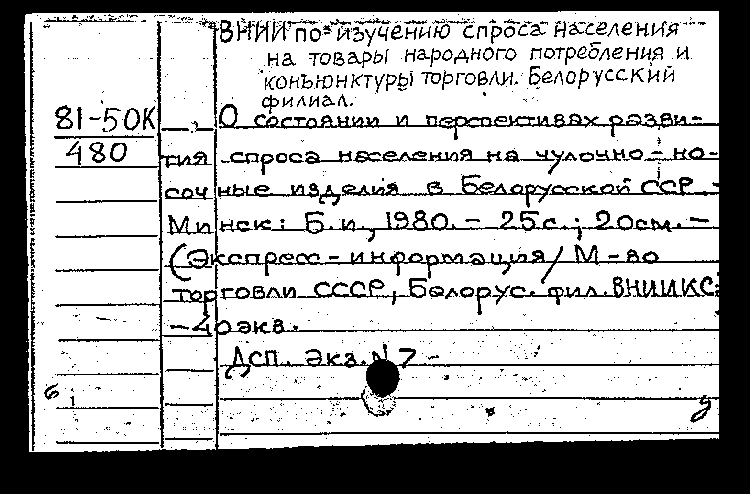 ВНИИ по изучению спроса населения
на товары народного потребления и
конъюнктуры торговли. Белорусский
филиал.
81-50К
480
О состоянии и перспективах разви-
тия спроса населения на чулочно-но-
сочные изделия в Белорусской ССР. -
Минск: Б.и., 1980. - 25с.; 20см. -
(Экспресс-информация/М-во
торговли СССР, Белорус. фил. ВНИИКС:
- 40экз.
Дсп. Экз. N 7 -
б
у